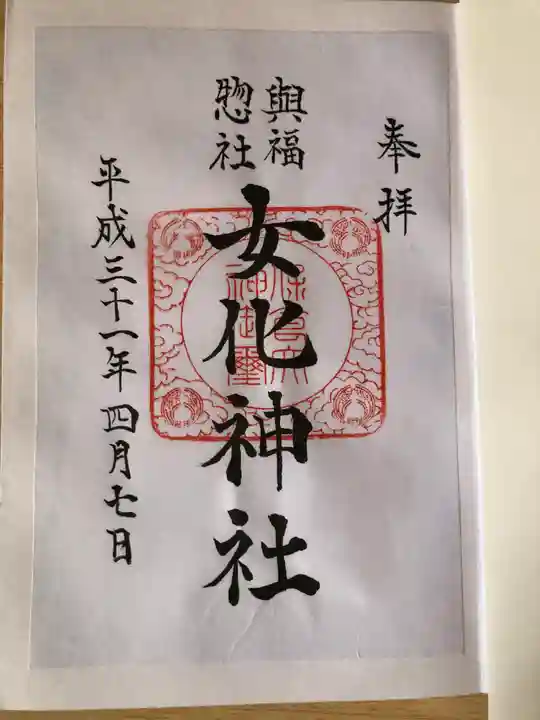 奉拝
與福
惣社
女化神社
平成三十一年四月七日